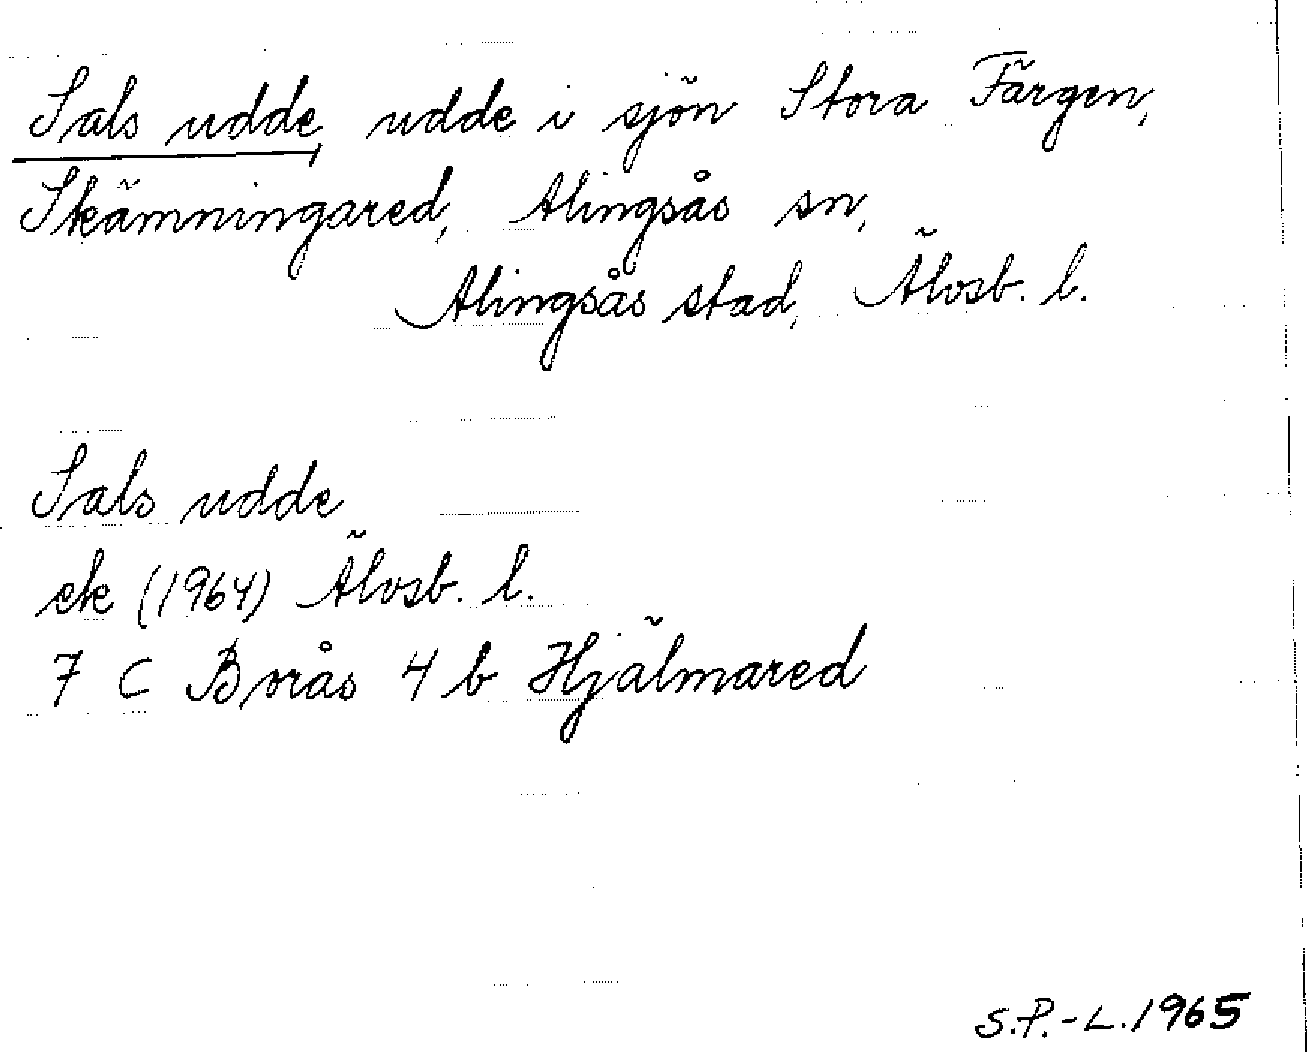 Sals udde, udde i sjön Stora Färgen,
Skämningared, Alingsås sn,
Alingsås stad, Älvsb. l.
Sals udde
ek (1964) Älvsb. l.
7 C Borås 4 b Hjälmared
S.P.-L. 1965